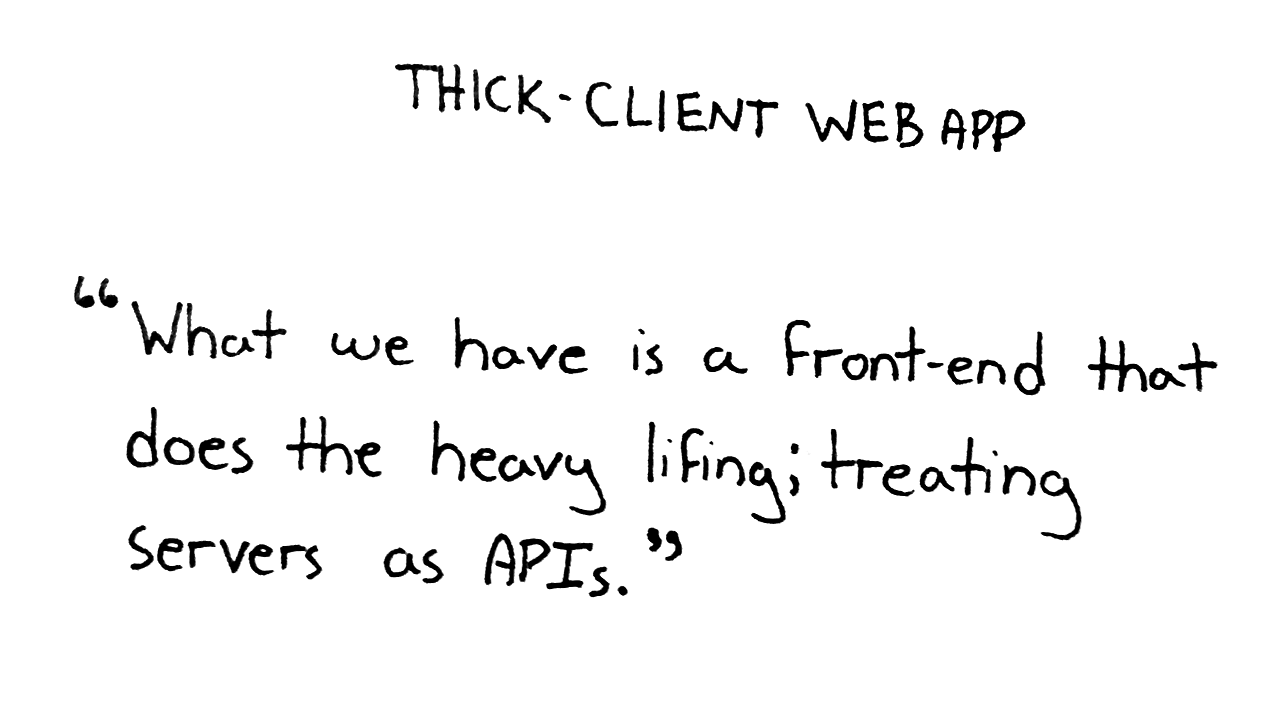 THICK-CLIENT WEB APP
“What we have is a front-end that
does the heavy lifing; treating
servers as APIs.”